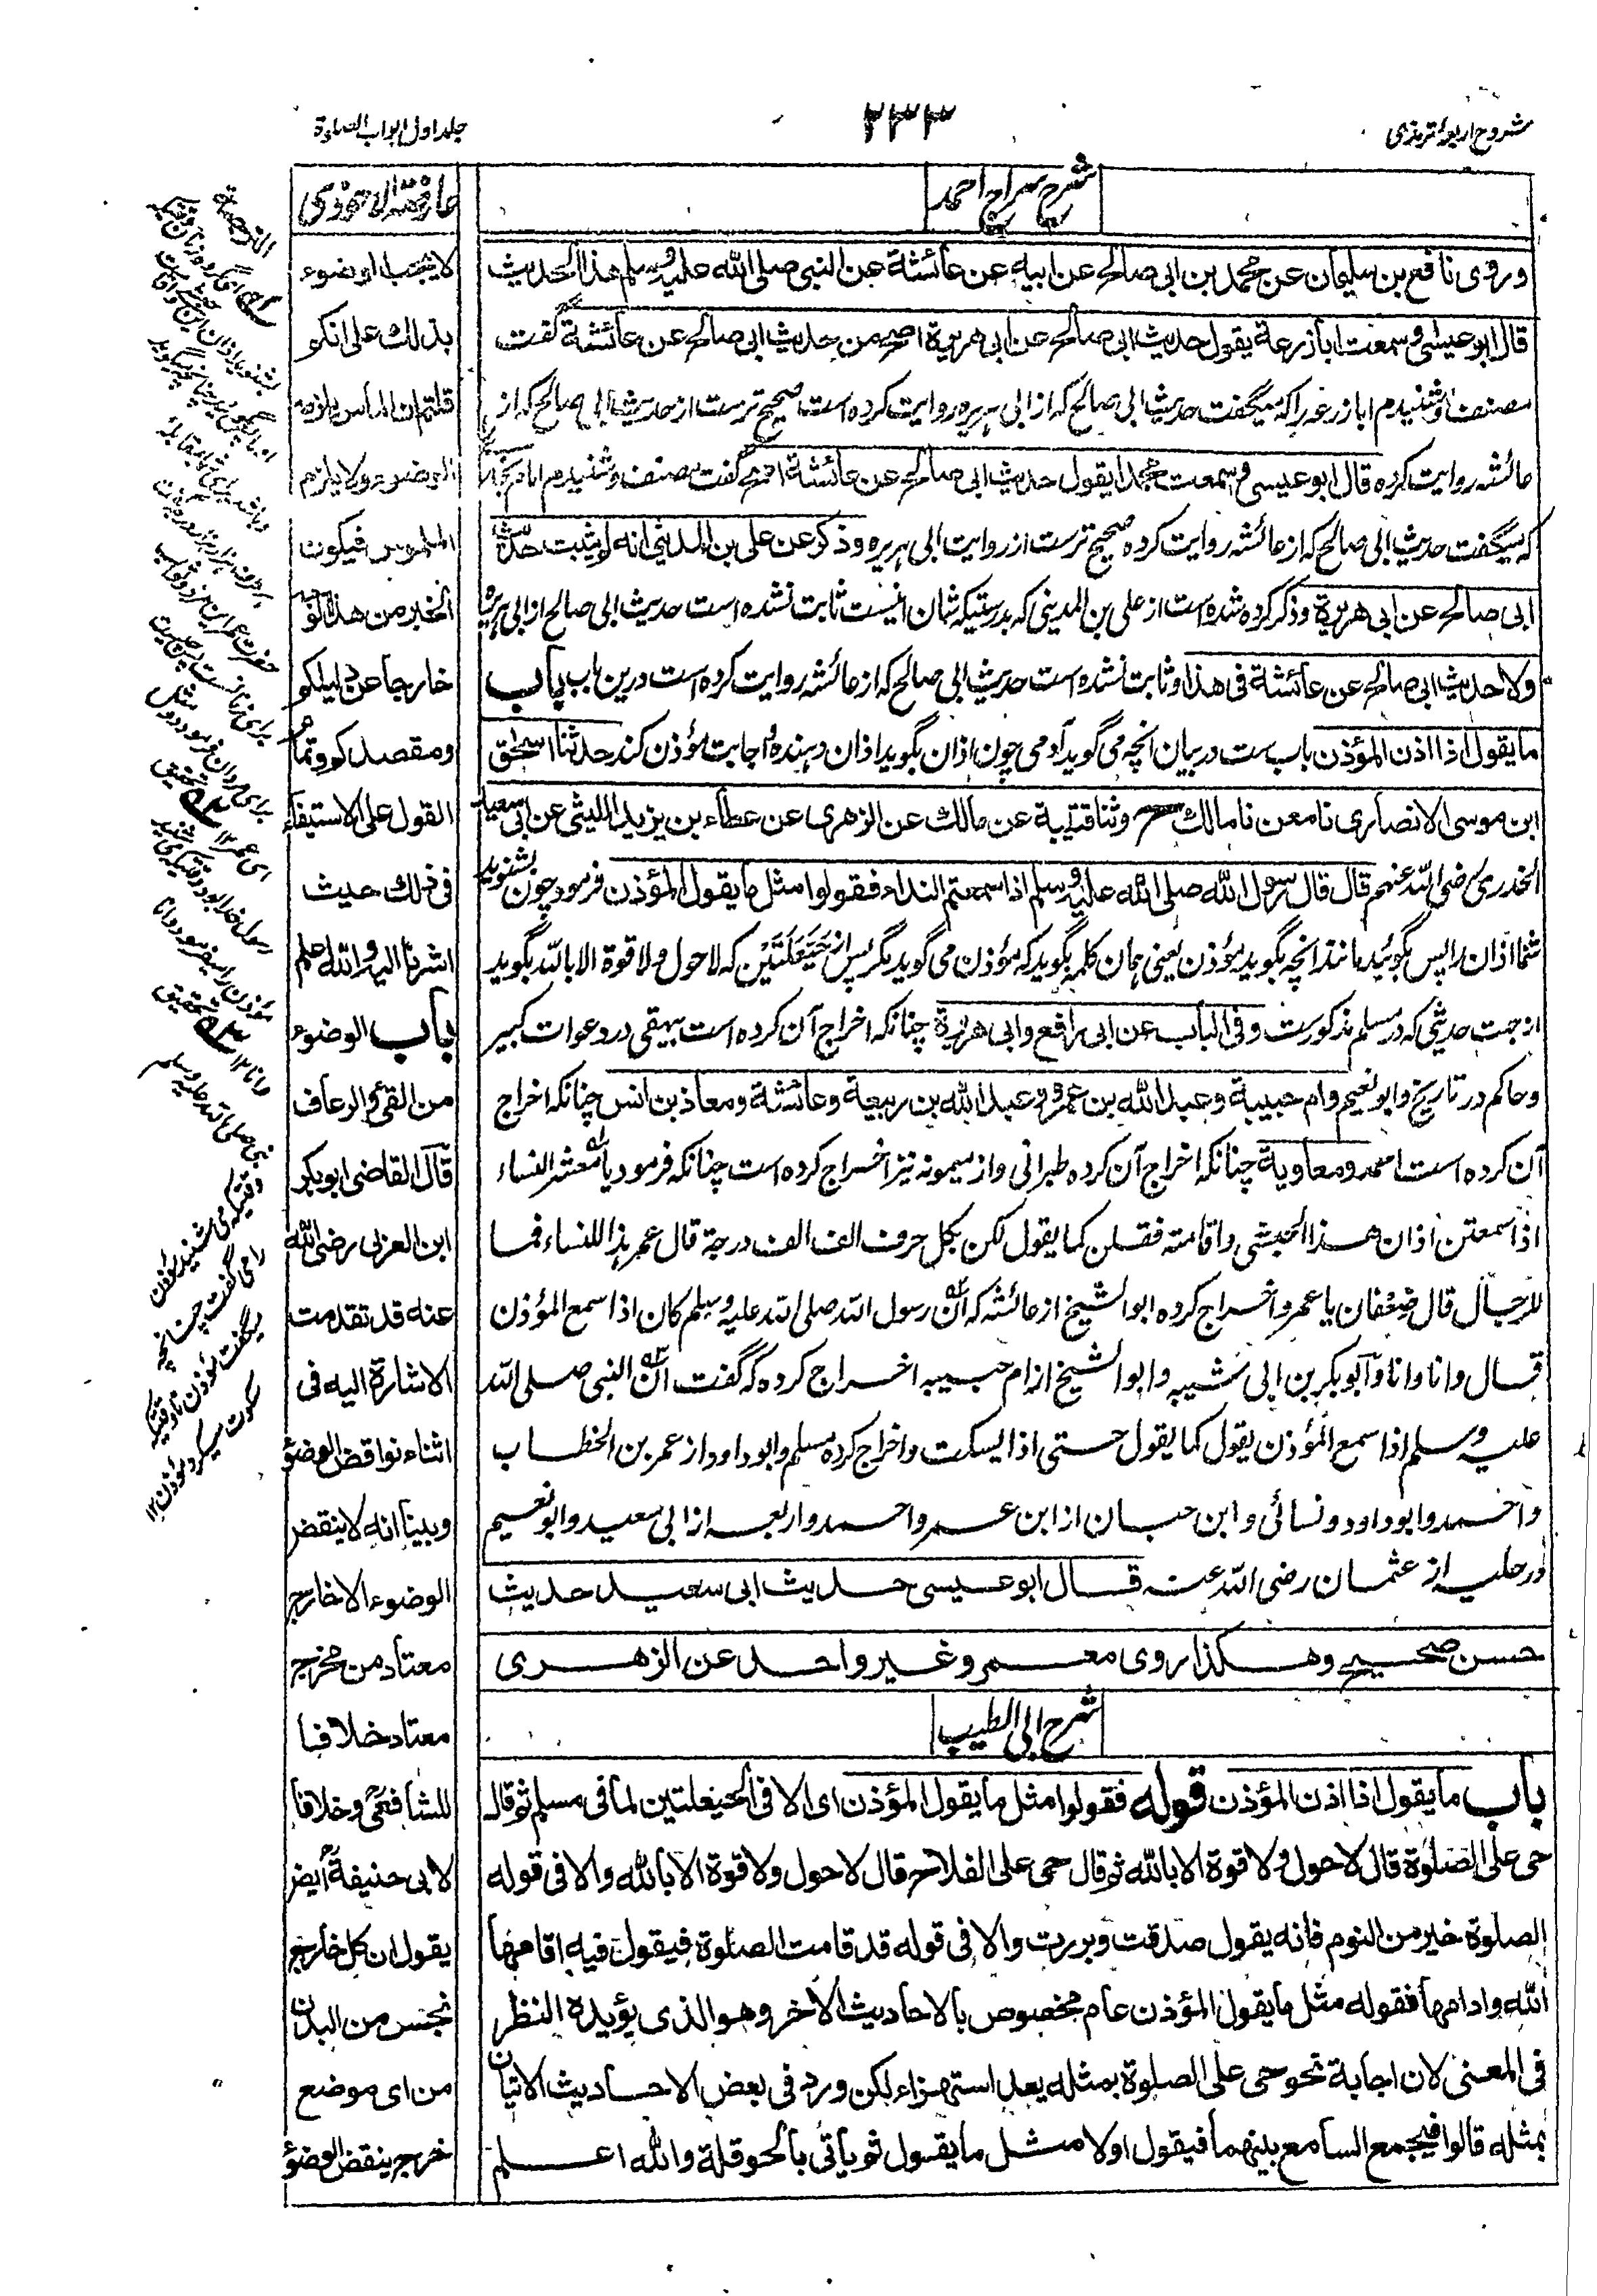 شروح اربعه ترمذی
۲۳۳
جلد اول ابواب الصلوة
شرح سراج احمد
وروی نافع بن سلیمان عن محمد بن ابی صالح عن ابیه عن عائشة عن النبی صلی الله علیه وسلم هذا الحدیث
قال ابو عیسی وسمعت ابا زرعة یقول حدیث ابی صالح عن ابی هریرة اصح من حدیث ابی صالح عن عائشة گفت
مصنف و شنیدم ابا زرعه را که میگفت حدیث ابی صالح که از ابی هریره روایت کرده است صحیح ترست از حدیث ابی صالح که از
عائشه روایت کرده قال ابو عیسی وسمعت محمدا یقول حدیث ابی صالح عن عائشة اصح گفت مصنف و شنیدم امام
که میگفت حدیث ابی صالح که از عائشه روایت کرده صحیح ترست از روایت ابی هریره وذکر عن علی بن المدینی انه لم یثبت حدیث
ابی صالح عن ابی هریرة وذکر کرده شده است از علی بن المدینی که بدرستیکه شان اینست ثابت نشده است حدیث ابی صالح از ابی هریره
ولا حدیث ابی صالح عن عائشة فی هذا وثابت نشده است حدیث ابی صالح که از عائشه روایت کرده است درین باب باب
ما یقول اذا اذن المؤذن باب ست در بیان انچه می گوید آدمی چون اذان بگوید اذان دهنده و اجابت مؤذن کند حدثنا اسحق
ابن موسی الانصاری نا معن نا مالک ح وثنا قتیبة عن مالک عن الزهری عن عطاء بن یزید اللیثی عن ابی سعید
الخدری رضی الله عنهم قال قال رسول الله صلی الله علیه وسلم اذا سمعتم النداء فقولوا مثل ما یقول المؤذن فرمود چون بشنوید
شما اذان را پس بگوئید مانند انچه بگوید مؤذن یعنی همان کلمه بگوید که مؤذن می گوید مگر پس از حیعلتین که لا حول ولا قوة الا بالله بگوید
از جهت حدیثی که در مسلم مذکورست وفی الباب عن ابی رافع وابی هریرة چنانکه اخراج آن کرده است بیهقی در دعوات کبیر
وحاکم در تاریخ وابو نعیم وام حبیبة وعبد الله بن عمرو وعبد الله بن ربیعة وعائشة ومعاذ بن انس چنانکه اخراج
آن کرده است احمد ومعاویة چنانکه اخراج آن کرده طبرانی واز میمونه نیز اخراج کرده است چنانکه فرمود یا معشر النساء
اذا سمعتن اذان هذا الحبشی واقامته فقلن کما یقول لکن بکل حرف الف الف درجة قال عمر هذا للنساء فما
للرجال قال ضعفان یا عمر واخراج کرده ابو الشیخ از عائشه که ان رسول الله صلی الله علیه وسلم کان اذا سمع المؤذن
قال وانا وانا وابو بکر بن ابی شیبه وابو الشیخ از ام حبیبه اخراج کرده که گفت ان النبی صلی الله
علیه وسلم اذا سمع المؤذن یقول کما یقول حتی اذا یسکت واخراج کرده مسلم وابو داود از عمر بن الخطاب
واحمد وابو داود ونسائی وابن حبان از ابن عمر واحمد واربعه از ابی سعید وابو نعیم
در حلیه از عثمان رضی الله عنه قال ابو عیسی حدیث ابی سعید حدیث
حسن صحیح وهکذا روی معمر وغیر واحد عن الزهری
شرح ابی الطیب
باب ما یقول اذا اذن المؤذن قوله فقولوا مثل ما یقول المؤذن ای الا فی الحیعلتین لما فی مسلم ثم قال
حی علی الصلوة قال لا حول ولا قوة الا بالله ثم قال حی علی الفلاح قال لا حول ولا قوة الا بالله والا فی قوله
الصلوة خیر من النوم فانه یقول صدقت وبررت والا فی قوله قد قامت الصلوة فیقول فیه اقامها
الله وادامها فقوله مثل ما یقول المؤذن عام مخصوص بالاحادیث الاخر وهو الذی یؤیده النظر
فی المعنی لان اجابة نحو حی علی الصلوة بمثله یعد استهزاء لکن ورد فی بعض الاحادیث الاتیان
بمثله قالوا فیجمع السامع بینهما فیقول اولا مثل ما یقول ثم یأتی بالحوقلة والله اعلم
عارضة الاحوذی
لا یجب الوضوء
بذلک علی انکم
قلتم ان الماس یلزمه
الوضوء ولا یلزم
الملموس فیکون
الخبر من هذا الوجه
خارجا عن دلیلکم
ومقصدکم وتمام
القول علی الاستیفاء
فی ذلک حیث
اشرنا الیه والله اعلم
باب الوضوء
من القئ والرعاف
قال القاضی ابو بکر
ابن العربی رضی الله
عنه قد تقدمت
الاشارة الیه فی
اثناء نواقض الوضوء
وبینا انه لا ینقض
الوضوء الا خارج
معتاد من مخرج
معتاد خلافا
للشافعی وخلافا
لابی حنیفة ایضا
یقول ان کل خارج
نجس من البدن
من ای موضع
خرج ینقض الوضوء
نبی صلی الله علیه وسلم
وقتیکه می شنید مؤذن
را می گفت چنانچه
میگفت مؤذن تا وقتیکه
سکوت میکرد مؤذن ۱۲